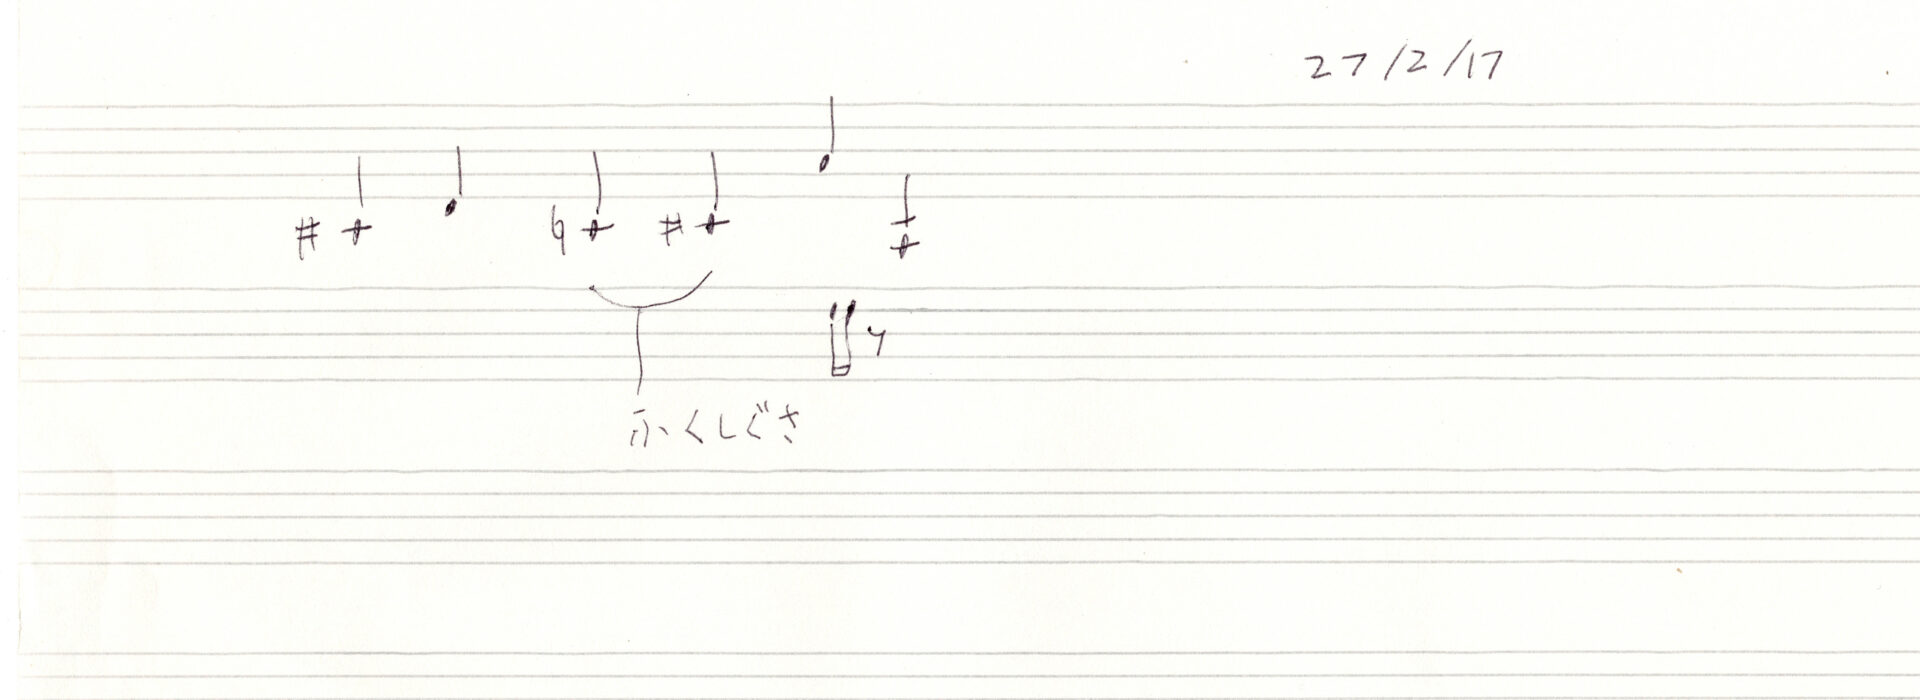 27/2/17
ふくしぐさ